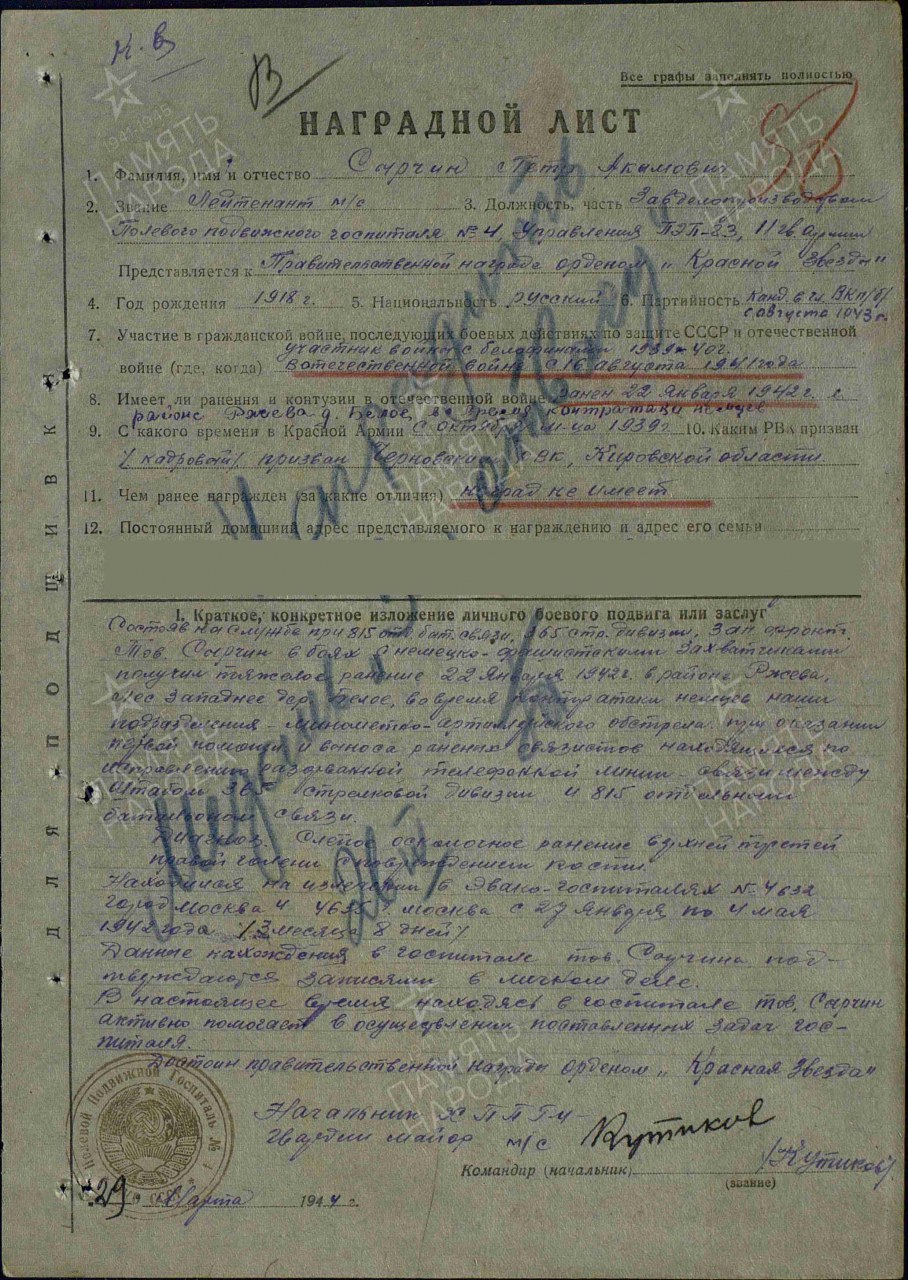 К. в
В
Все графы заполнять полностью
НАГРАДНОЙ ЛИСТ
1. Фамилия, имя и отчество Сарчин Петр Акимович
2. Звание Лейтенант м/с 3. Должность, часть Завделопроизводством
Полевого подвижного госпиталя №4 Управления ПЭП-23, 11 гв. Армии
Представляется к Правительственной награде орденом „Красной Звезды"
4. Год рождения 1918 г. 5. Национальность русский 6. Партийность Канд. в чл. ВКП/б/
с августа 1943 г.
7. Участие в гражданской войне, последующих боевых действиях по защите СССР и отечественной
участник войны с белофинами 1939-40 г.
войне (где, когда) В отечественной войне с 16 августа 1941 года
8. Имеет ли ранения и контузии в отечественной войне Ранен 22 Января 1942 г. в
районе Ржева д. Белое, во время контратаки немцев
9. С какого времени в Красной Армии С октября м-ца 1939 г 10. Каким РВК призван
/кадровый/ призван Черновским РВК, Кировской области
11. Чем ранее награжден (за какие отличия) наград не имеет
12. Постоянный домашний адрес представляемого к награждению и адрес его семьи
I. Краткое, конкретное изложение личного боевого подвига или заслуг
Состояв на службе при 815 отд. бат. связи, 365 стр. дивизии, Зап фронт.
Тов. Сарчин в боях с немецко-фашистскими захватчиками
получил тяжелое ранение 22 Января 1942 г. в районе Ржева,
лес Западнее дер. Белое, во время контратаки немцев наши
подразделения - минометно-артиллерийского обстрела при оказании
первой помощи и выноса раненых связистов находящихся по
исправлению разорванной телефонной линии - связи между
Штабом 365 стрелковой дивизии и 815 отдельным
батальоном связи.
Диагноз: Слепое осколочное ранение верхней третей
правой голени с повреждением кости.
Находился на излечении в Эвако-госпиталях № 4632
город Москва и 4635 г. Москва с 27 Января по 4 мая
1942 года /3 месяца 8 дней/
Данные нахождения в госпитале тов. Сарчина под-
тверждаются записями в личном деле.
В настоящее время находясь в госпитале тов. Сарчин
активно помогает в осуществлении поставленных задач гос-
питаля.
Достоин правительственной награды орденом „Красная Звезда"
Начальник
гвардии майор м/с Кутиков
Командир (начальник) /Кутиков/
(звание)
29 Марта 1944 г.
Полевой Подвижной Госпиталь №
ДЛЯ ПОДШИВКИ
Наградить
Медалью
ПАМЯТЬ НАРОДА
1941-1945